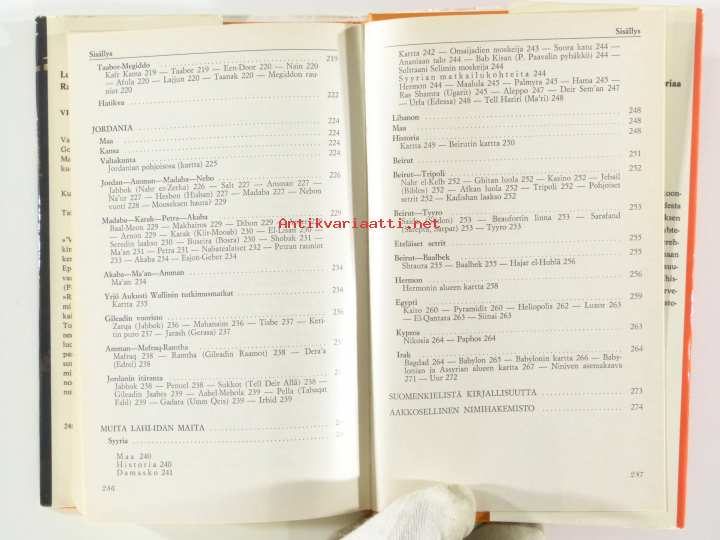 Sisällys
Taabor-Megiddo 219
Kafr Kama 219 — Taabor 219 — Een-Door 220 — Nain 220
— Afula 220 — Lajjun 220 — Taanak 220 — Megiddon rau
niot 220
Hatikva 222
JORDANIA 224
Maa 224
Kansa 224
Valtakunta 224
Jordanian pohjoisosa (kartta) 225
Jordan—Amman—Madaba—Nebo 226
Jabbok (Nahr ez-Zerka) 226 — Salt 227 — Amman 227 —
Na'ur 227 — Hesbon (Husban) 227 — Madaba 227 — Nebon
vuori 228 — Mooseksen hauta? 228
Madaba—Karak—Petra—Akaba 229
Baal-Meon 229 — Makhairos 229 — Dibon 229
— Arnon 229 — Karak (Kiir-Mooab) 230 — El-Lisan 230 —
Seredin laakso 230 — Buseira (Bosra) 230 — Shobak 231 —
Ma'an 231 — Petra 231 — Nabatealaiset 232 — Petran rauniot
233 — Akaba 234 — Esjon-Geber 234
Akaba—Ma'an—Amman 234
Ma'an 234
Yrjö Aukusti Wallinin tutkimusmatkat 234
Kartta 235
Gileadin vuoristo 236
Zarqa (Jabbok) 236 — Mahanaim 236 — Tisbe 237 — Keri-
tin puro 237 — Jarash (Gerasa) 237
Amman—Mafraq—Ramtha
Mafraq 238 — Ramtha (Gileadin Raamot) 238 — Dera'a
(Edrei) 238
Jordanin itäranta
Jabbok 238 — Penuel 238 — Sukkot (Tell Deir Allä) 238 —
Gileadin Jaabes 239 — Aabel-Mehola 239 — Pella (Tabaqat
Fahl) 239 — Gadara (Umm Qeis) 239 — Irbid 239
MUITA LÄHI-IDÄN MAITA
Syyria
Maa 240
Historia 240
Damasko 241
236
Sisällys
Kartta 242 — Omaijadien moskeija 243 — Suora katu 244 —
Ananiaan talo 244 — Bab Kisan (P. Paavalin pyhäkkö) 244 —
Sulttaani Selimin moskeija 244
Syyrian matkailukohteita 244
Hermon 244 — Maalula 245 — Palmyra 245 — Hama 245 —
Ras Shamra (Ugarit) 245 — Aleppo 247 — Deir Sem'an 247
— Urfa (Edessa) 248 — Tell Hariri (Ma'ri) 248
Libanon 248
Maa 248
Historia 248
Kartta 249 — Beirutin kartta 250
Beirut 251
Beirut—Tripoli 252
Nahr el-Kelb 252 — Ghitan luola 252 — Kasino 252 — Jebail
(Biblos) 252 — Afkan luola 252 — Tripoli 252 — Pohjoiset
setrit 252 — Kadishan laakso 252
Beirut—Tyyro 253
Saida (Siidon) 253 — Beaufortin linna 253 — Sarafand
(Sarepta, Sarpat) 253 — Tyyro 253
Eteläiset setrit 253
Beirut—Baalbek 253
Shtaura 255 — Baalbek 255 — Hajar el-Hublä 256
Hermon 256
Hermonin alueen kartta 258
Egypti 259
Kairo 260 — Pyramidit 260 — Heliopolis 262 — Luxor 263
— El-Qantara 263 — Siinai 263
Kypros 263
Nikosia 264 — Paphos 264
Irak 264
Bagdad 264 — Babylon 265 — Babylonin kartta 266 — Baby-
lonian ja Assyrian alueen kartta 267 — Niniven asemakaava
271 — Uur 272
SUOMENKIELISTÄ KIRJALLISUUTTA 273
AAKKOSELLINEN NIMIHAKEMISTO 274
237
Antikvariaatti.net